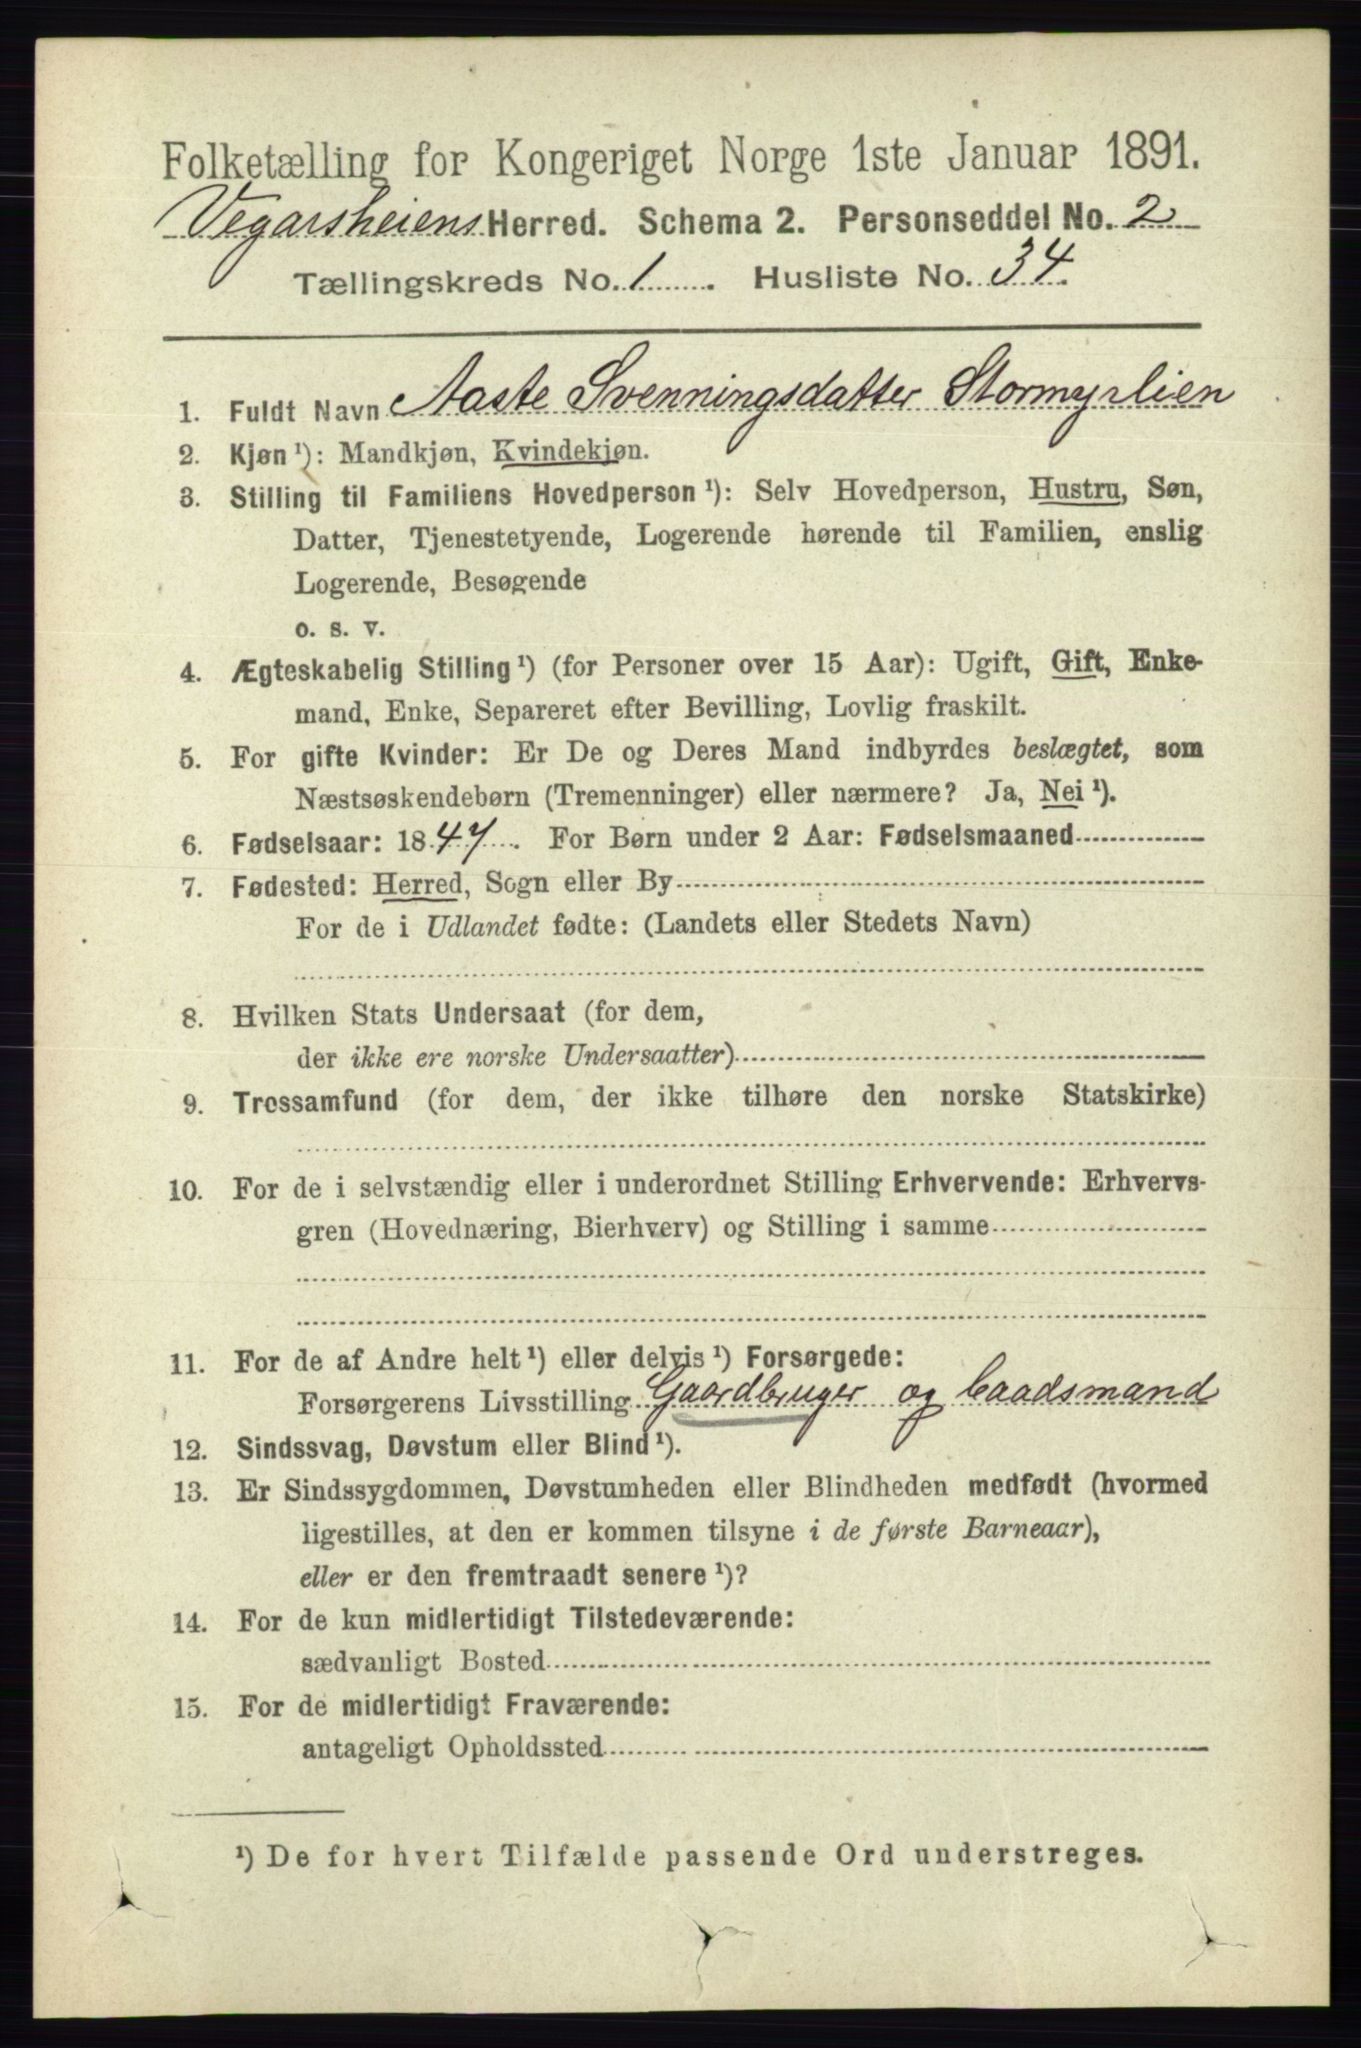 Folketælling for Kongeriget Norge 1ste Januar 1891.
Vegarsheiens Herred. Schema 2. Personseddel No. 2
Tællingskreds No. 1. Husliste No. 34.
1. Fuldt Navn Aaste Svenningsdatter Stormyrlien
2. Kjøn ¹): Mandkjøn, Kvindekjøn.
3. Stilling til Familiens Hovedperson ¹): Selv Hovedperson, Hustru, Søn,
Datter, Tjenestetyende, Logerende hørende til Familien, enslig
Logerende, Besøgende
o. s. v.
4. Ægteskabelig Stilling ¹) (for Personer over 15 Aar): Ugift, Gift, Enke-
mand, Enke, Separeret efter Bevilling, Lovlig fraskilt.
5. For gifte Kvinder: Er De og Deres Mand indbyrdes beslægtet, som
Næstsøskendebørn (Tremenninger) eller nærmere? Ja, Nei ¹).
6. Fødselsaar: 1847. For Børn under 2 Aar: Fødselsmaaned
7. Fødested: Herred, Sogn eller By
For de i Udlandet fødte: (Landets eller Stedets Navn)
8. Hvilken Stats Undersaat (for dem,
der ikke ere norske Undersaatter)
9. Trossamfund (for dem, der ikke tilhøre den norske Statskirke)
10. For de i selvstændig eller i underordnet Stilling Erhvervende: Erhvervs-
gren (Hovednæring, Bierhverv) og Stilling i samme
11. For de af Andre helt ¹) eller delvis ¹) Forsørgede:
Forsørgerens Livsstilling Gaardbruger og baadsmand
12. Sindssvag, Døvstum eller Blind ¹).
13. Er Sindssygdommen, Døvstumheden eller Blindheden medfødt (hvormed
ligestilles, at den er kommen tilsyne i de første Barneaar),
eller er den fremtraadt senere ¹)?
14. For de kun midlertidigt Tilstedeværende:
sædvanligt Bosted
15. For de midlertidigt Fraværende:
antageligt Opholdssted
¹) De for hvert Tilfælde passende Ord understreges.